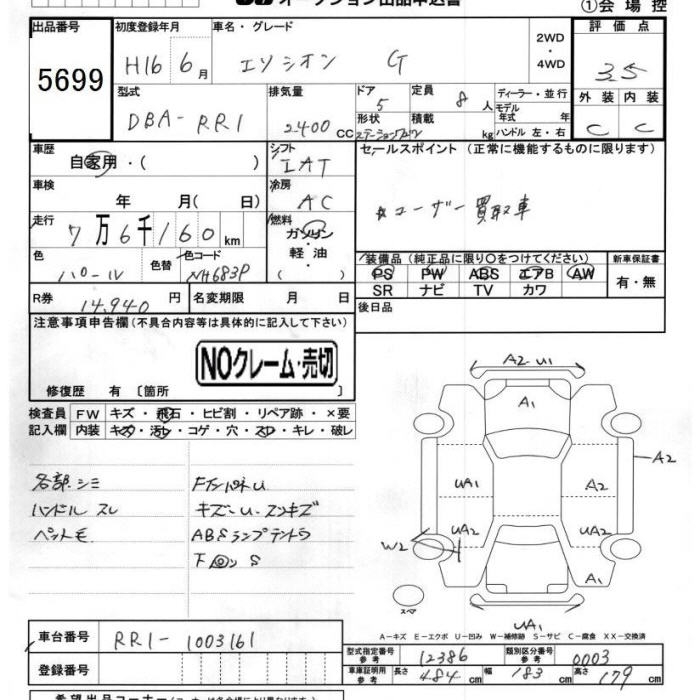 オークション出品申込書
①会 場 控
出品番号
5699
初度登録年月
H16 6月
車名・グレード
エリシオン G
2WD
・
4WD
評 価 点
3.5
型式
DBA-RR1
排気量
2400 CC
ドア
5
定員
8 人
形状
ステーションワゴン
積載
kg
ディーラー・並行
モデル
年式 年
ハンドル 左・右
外 装
C
内 装
C
車歴
自家用・( )
シフト
IAT
セールスポイント (正常に機能するものに限ります)
車検
年 月( 日)
冷房
AC
☆ユーザー買取車
走行
7万6千160km
燃料
ガソリン
軽 油
( )
色
パール
色替
色コード
NH683P
装備品 (純正品に限り〇をつけてください)
PS PW ABS エアB AW
SR ナビ TV カワ
新車保証書
有・無
R券
14,940 円
名変期限 月 日
後日品
注意事項申告欄 (不具合内容等は具体的に記入して下さい)
NOクレーム・売切
修復歴 有 〔箇所 〕
検査員 FW キズ・飛石・ヒビ割・リペア跡・×要
記入欄 内装 キズ・汚レ・コゲ・穴・スレ・キレ・破レ
各部シミ
ハンドル スレ
ペット毛
キズ・U・スンキズ
ABSランプテントウ
A2 U1
A1
A2
UA1
A2
UA2
UA2
W2
A1
スペア
UA1
A-キズ E-エクボ U-凹み W-補修跡 S-サビ C-腐食 XX-交換済
車台番号
RR1-1003161
登録番号
型式指定番号
参 考
12386
類別区分番号
参 考
0003
車庫証明用
参 考
長さ
484 cm
幅
183 cm
高さ
179 cm
希望出品コーナー